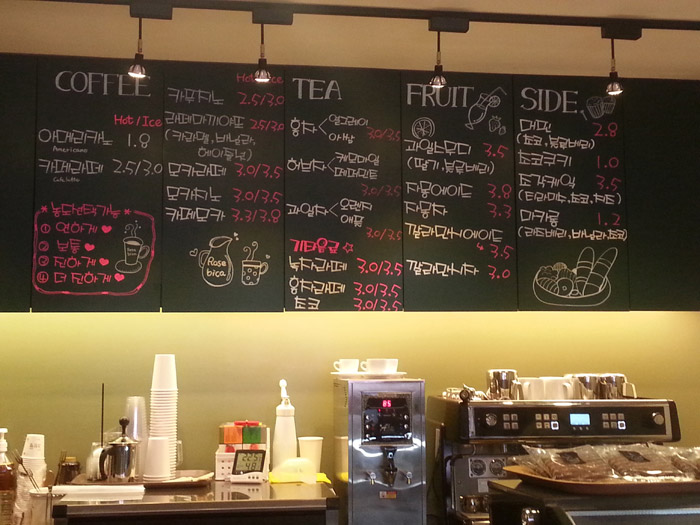 COFFEE
Hot/Ice
아메리카노 1.8
Americano
카페라떼 2.5/3.0
Cafe latte
* 농도선택가능 *
① 연하게 ♥
② 보통 ♥
③ 진하게 ♥
④ 더 진하게 ♥
Hot/Ice
카푸치노 2.5/3.0
라떼마끼아또 2.5/3.0
(카라멜, 바닐라,
헤이즐넛)
모카라떼 3.0/3.5
모카치노 3.0/3.5
카페모카 3.3/3.8
Rose
bica
TEA
홍차 < 얼그레이
아쌈 3.0/3.5
허브차 < 캐모마일
페퍼민트
3.0/3.5
과일차 < 오렌지
애플
3.0/3.5
기타음료 ☆
녹차라떼 3.0/3.5
홍차라떼 3.0/3.5
초코 3.0/3.5
FRUIT
과일스무디 3.5
(딸기, 블루베리)
자몽에이드 3.8
자몽차 3.3
깔라만시에이드
3.5
깔라만시차 3.0
SIDE
머핀 2.8
(초코, 블루베리)
초코쿠키 1.0
조각케익 3.5
(티라미수, 초코, 치즈)
마카롱 1.2
(라즈베리, 바닐라, 초코)
85